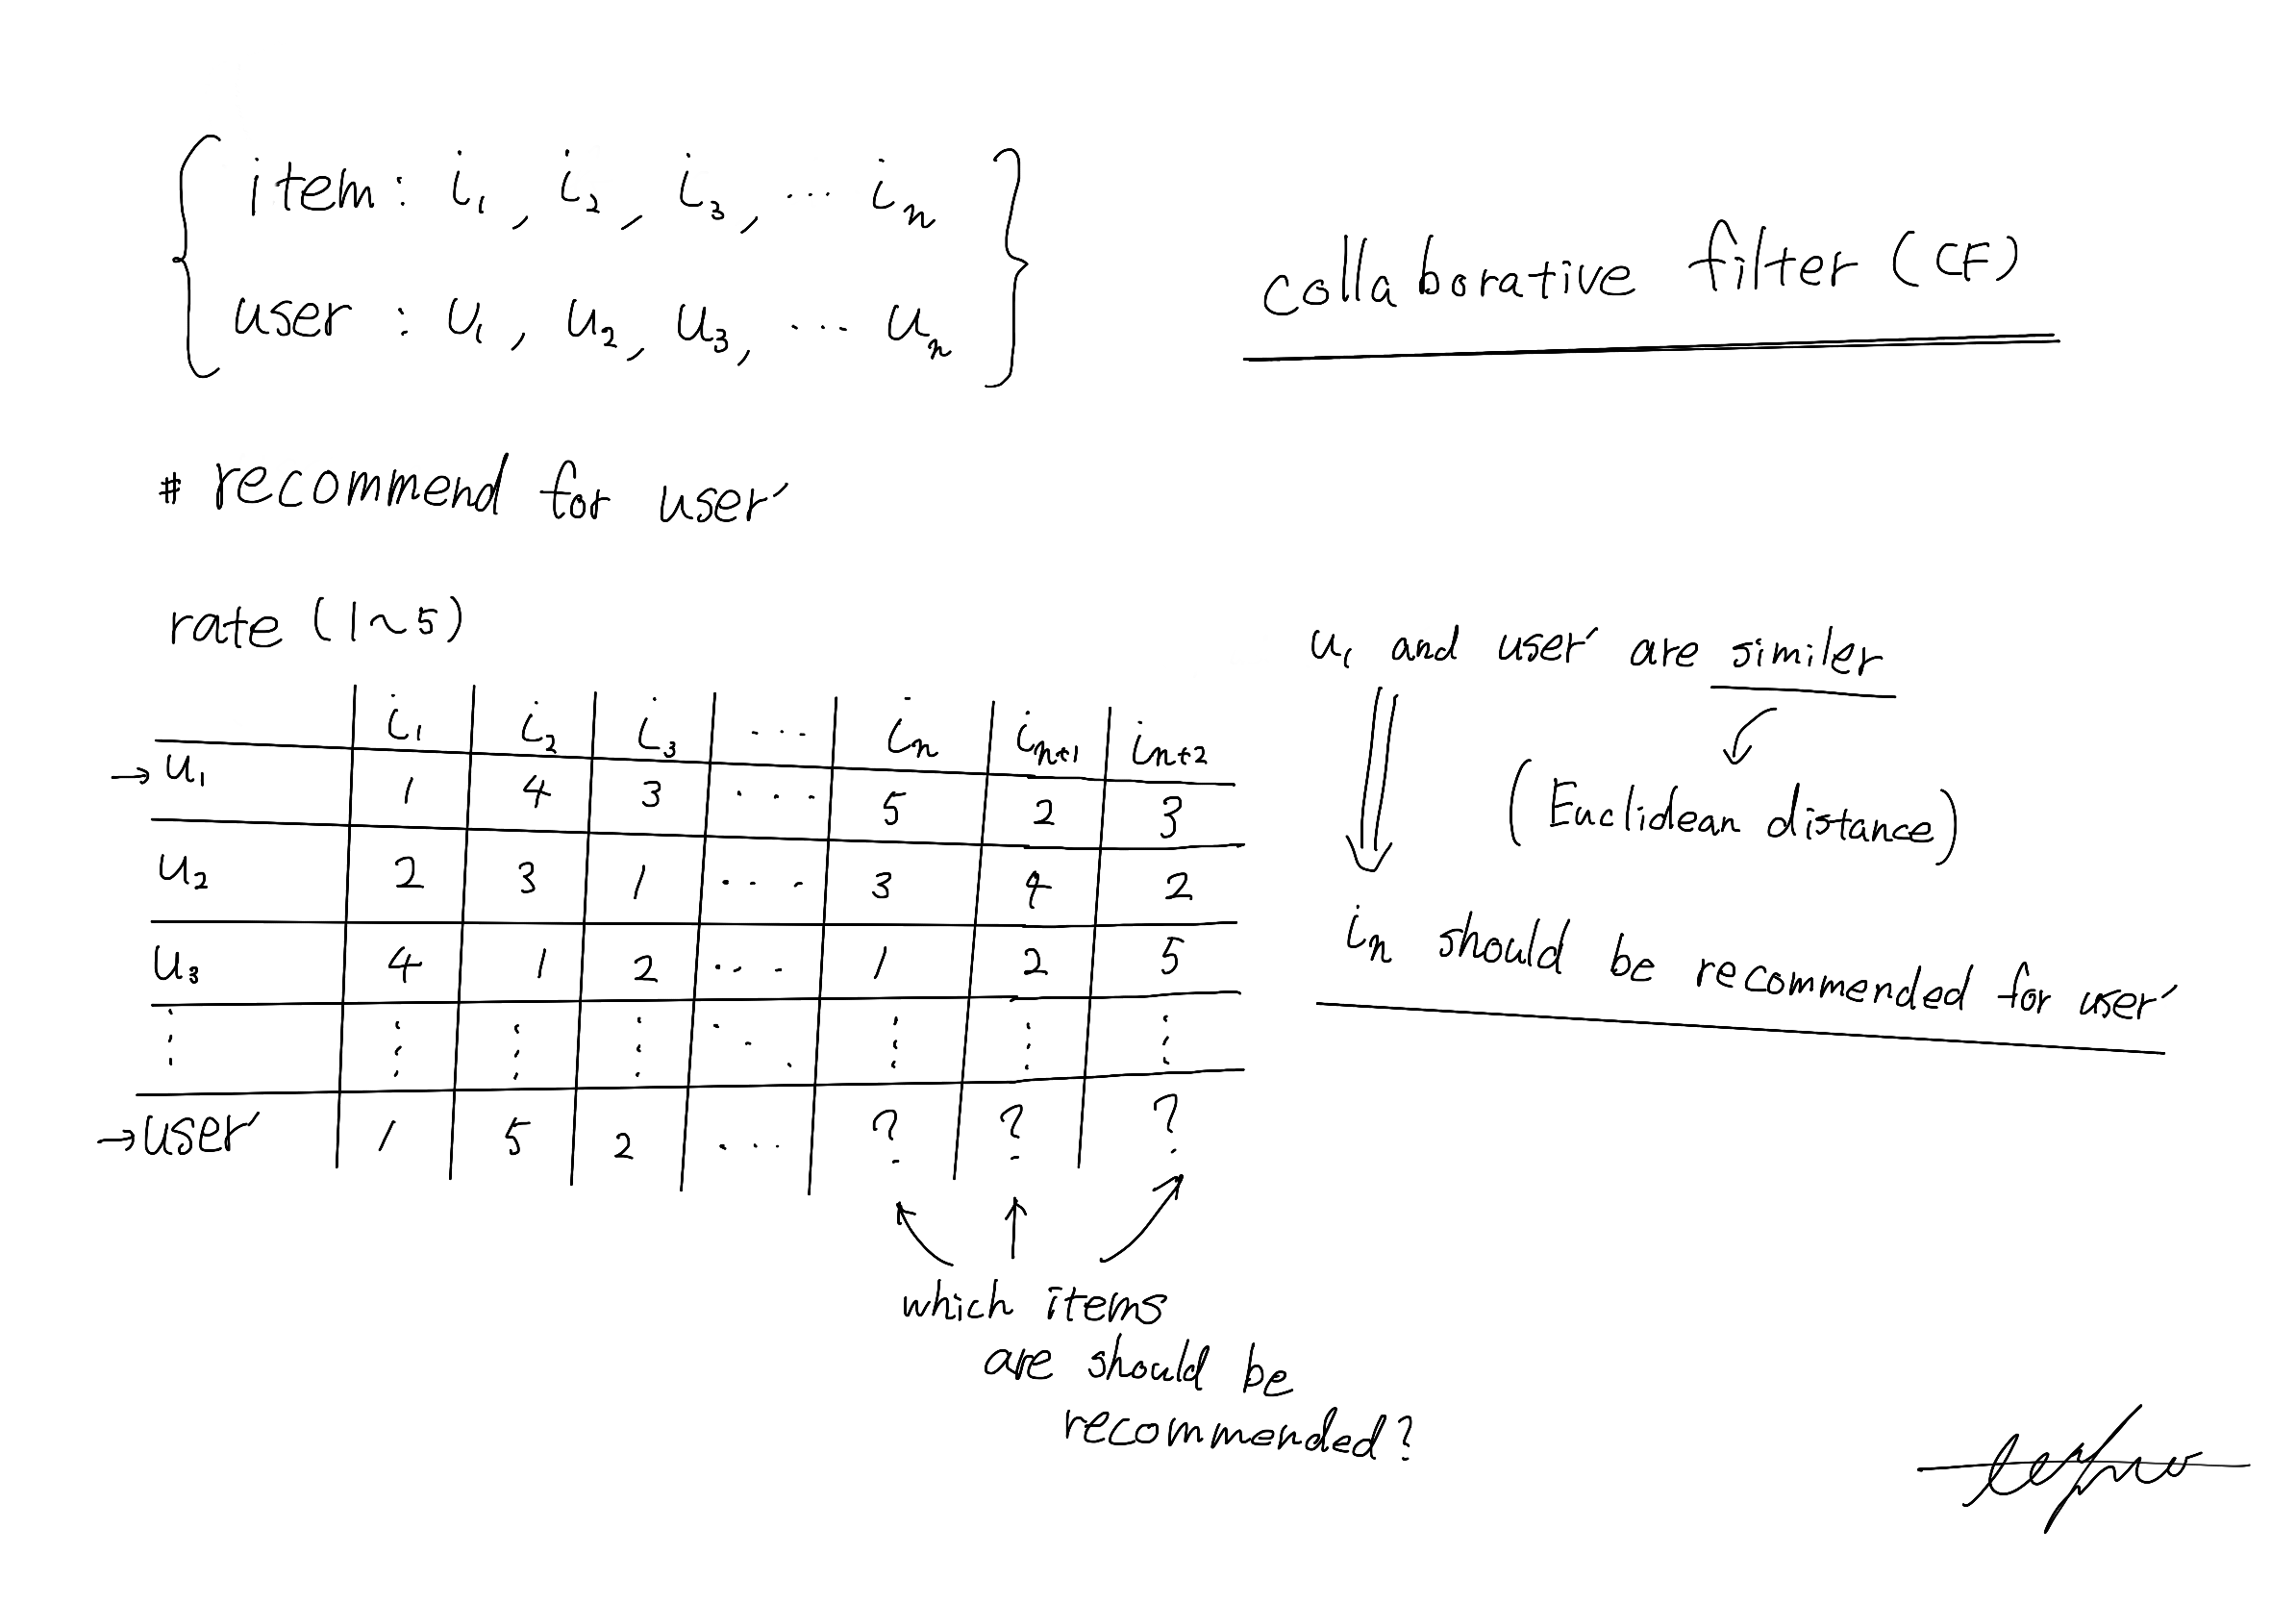 item: i₁, i₂, i₃, ... iₙ
user: u₁, u₂, u₃, ... uₙ
collaborative filter (CF)
# recommend for user′
rate (1~5)
i₁ i₂ i₃ ... iₙ iₙ₊₁ iₙ₊₂
→ u₁ 1 4 3 ... 5 2 3
u₂ 2 3 1 ... 3 4 2
u₃ 4 1 2 ... 1 2 5
→ user′ 1 5 2 ... ? ? ?
which items
are should be
recommended?
u₁ and user′ are similer
(Euclidean distance)
iₙ should be recommended for user′